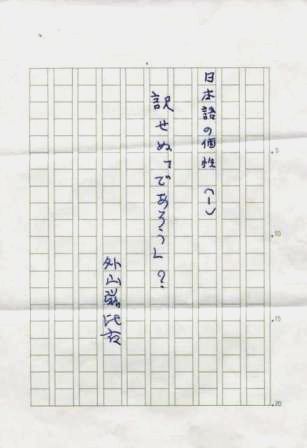 日本語の個性 (一)
訳せぬ「であろう」？
外山滋比古
5
10
15
20